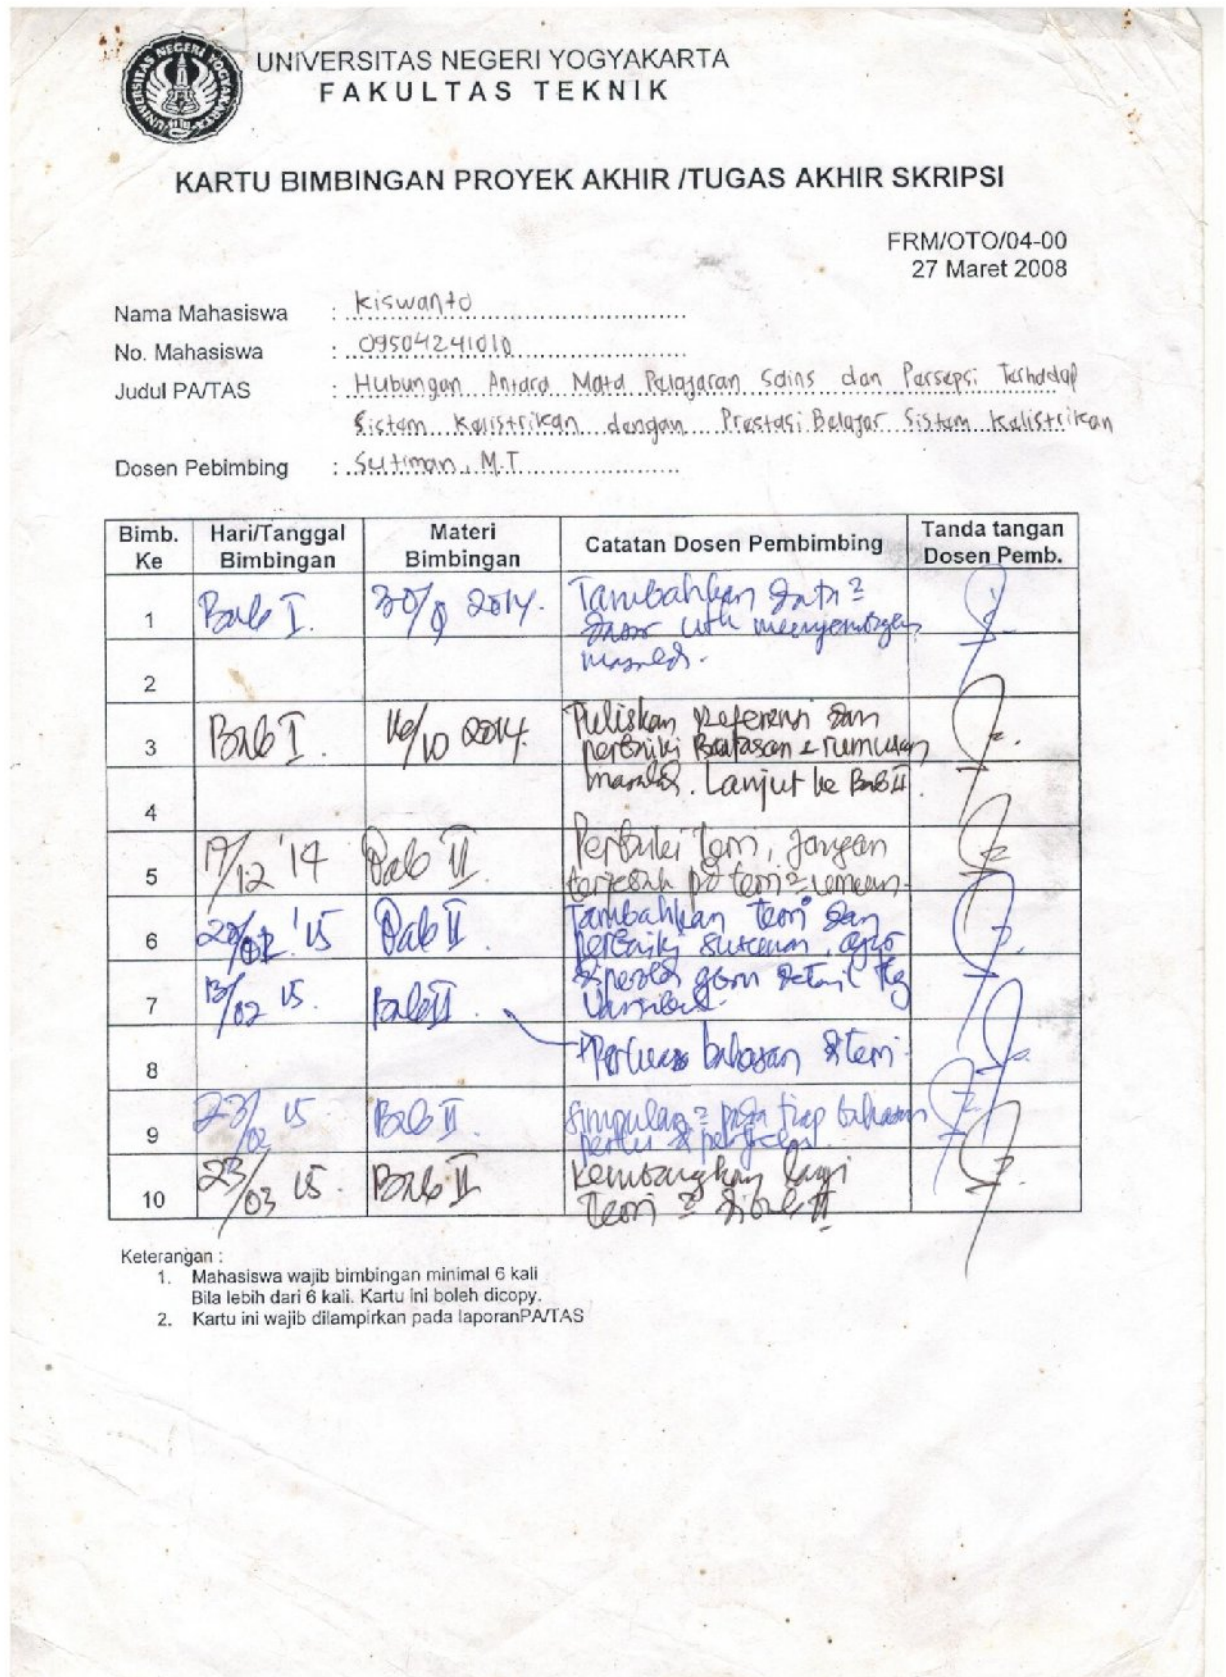 UNIVERSITAS NEGERI YOGYAKARTA
FAKULTAS TEKNIK
UNIVERSITAS NEGERI YOGYAKARTA
KARTU BIMBINGAN PROYEK AKHIR /TUGAS AKHIR SKRIPSI
FRM/OTO/04-00
27 Maret 2008
Nama Mahasiswa : Kiswanto
No. Mahasiswa : 09504241010
Judul PA/TAS : Hubungan Antara Mata Pelajaran Sains dan Persepsi Terhadap
Sistem Kelistrikan dengan Prestasi Belajar Sistem Kelistrikan
Dosen Pebimbing : Sutiman, M.T
Bimb. Ke Hari/Tanggal Bimbingan Materi Bimbingan Catatan Dosen Pembimbing Tanda tangan Dosen Pemb.
1 Bab I. 2014. Tambahkan data2
dasar utk
masalah.
2
3 Bab I. 16/10 2014. Tuliskan Referensi dan
perbaiki Batasan & rumusan
4 masalah. Lanjut ke Bab II.
5 17/12 '14 Bab II. Perbaiki teori, jangan
terjebak pd teori2 umum.
6 '15 Bab II. Tambahkan teori dan
perbaiki susunan, agar
7 13/02 15. Bab II. diperoleh detail ttg
Variabel.
8 bahasan & teori.
9 23/02 15 Bab II. Simpulan2 pada tiap bahasan
perlu
10 23/03 15. Bab II Kembangkan lagi
teori2 di bab II
Keterangan :
1. Mahasiswa wajib bimbingan minimal 6 kali
Bila lebih dari 6 kali. Kartu ini boleh dicopy.
2. Kartu ini wajib dilampirkan pada laporanPA/TAS